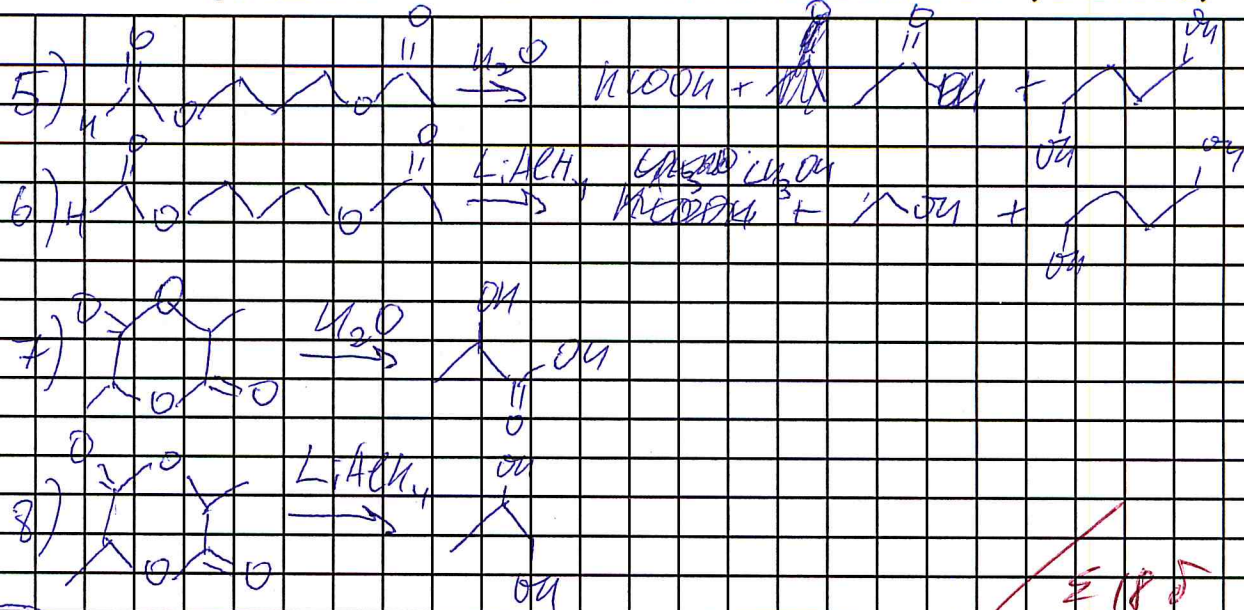 5) H O O O O H₂O HCOOH + O OH + OH OH
6) H O O O O LiAlH₄ CH₃OH + OH + OH OH
7) O O O O H₂O OH OH O
8) O O O O LiAlH₄ OH OH
Σ 18 б